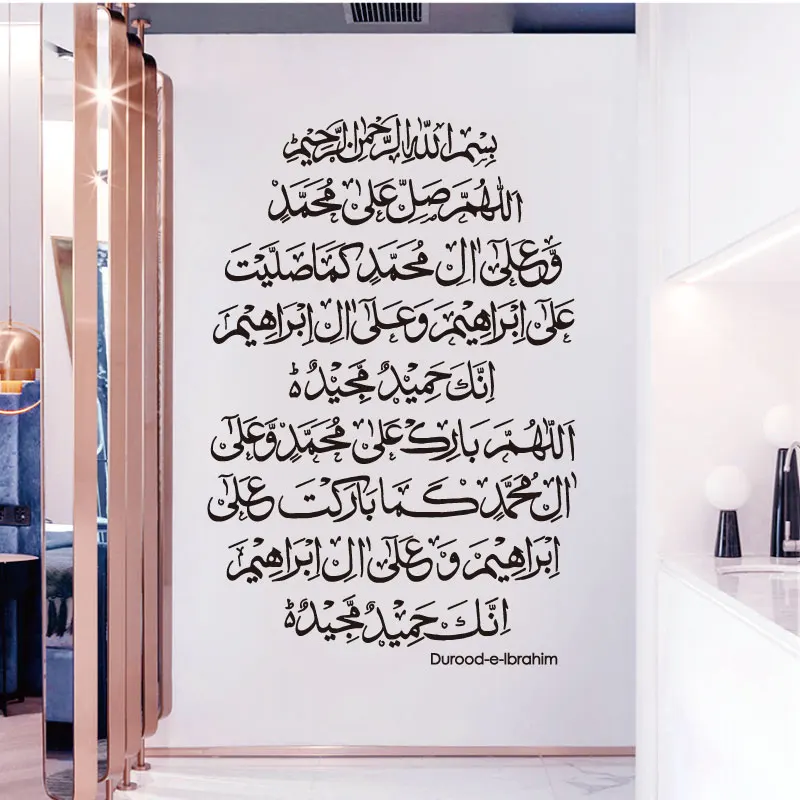 بِسْمِ اللّٰهِ الرَّحْمٰنِ الرَّحِيْمِ
اَللّٰهُمَّ صَلِّ عَلٰى مُحَمَّدٍ
وَّعَلٰٓى اٰلِ مُحَمَّدٍ كَمَا صَلَّيْتَ
عَلٰٓى اِبْرَاهِيْمَ وَعَلٰٓى اٰلِ اِبْرَاهِيْمَ
اِنَّكَ حَمِيْدٌ مَّجِيْدٌ ؕ
اَللّٰهُمَّ بَارِكْ عَلٰى مُحَمَّدٍ وَّعَلٰٓى
اٰلِ مُحَمَّدٍ كَمَا بَارَكْتَ عَلٰٓى
اِبْرَاهِيْمَ وَعَلٰٓى اٰلِ اِبْرَاهِيْمَ
اِنَّكَ حَمِيْدٌ مَّجِيْدٌ ؕ
Durood-e-Ibrahim